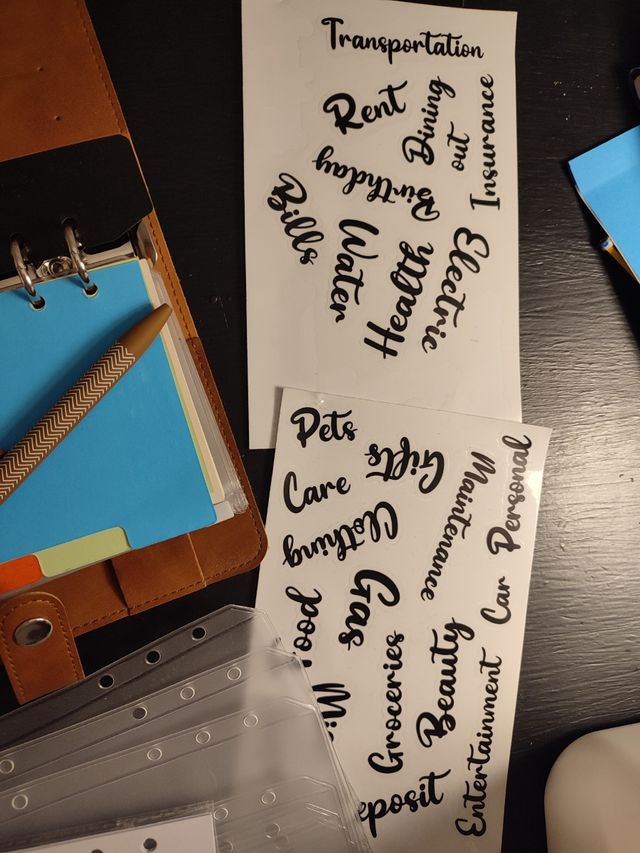 Transportation
Rent
Dining
out
Insurance
Birthday
Bills
Water
Health
Electric
Pets
Gifts
Care
Maintenance
Personal
Clothing
Gas
Car
Groceries
Beauty
Entertainment